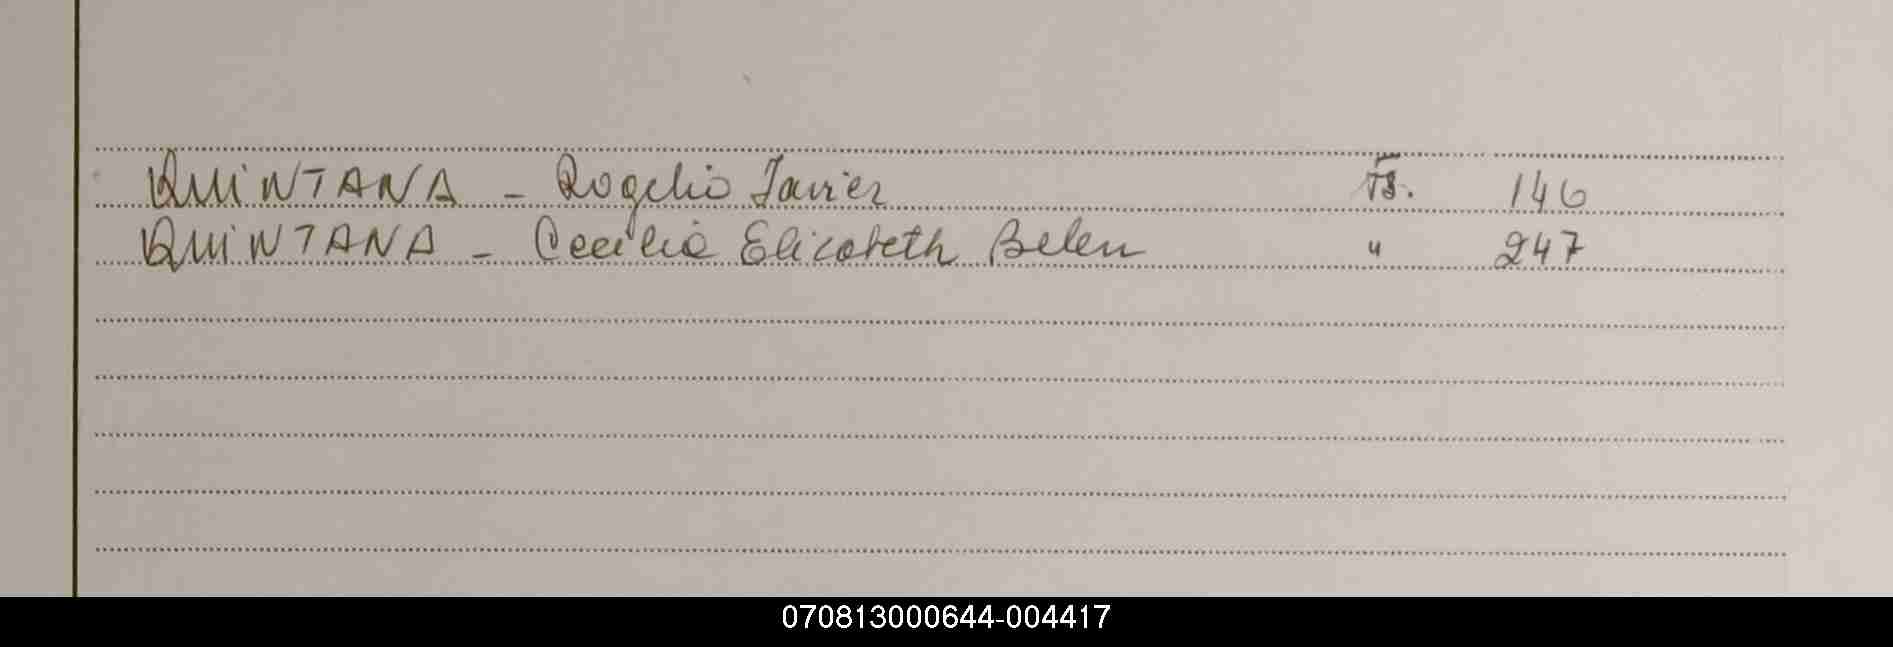 QUINTANA - Rogelio Javier 146
QUINTANA - Cecilia Elizabeth Belen " 247
070813000644-004417